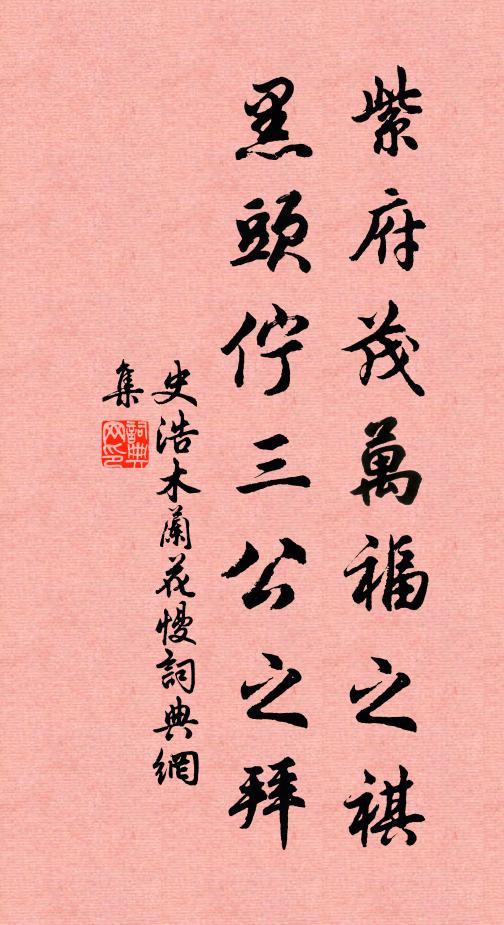 紫府茂萬福之祺
黑頭佇三公之拜
史浩木蘭花慢詞典網
集
詞典
网印